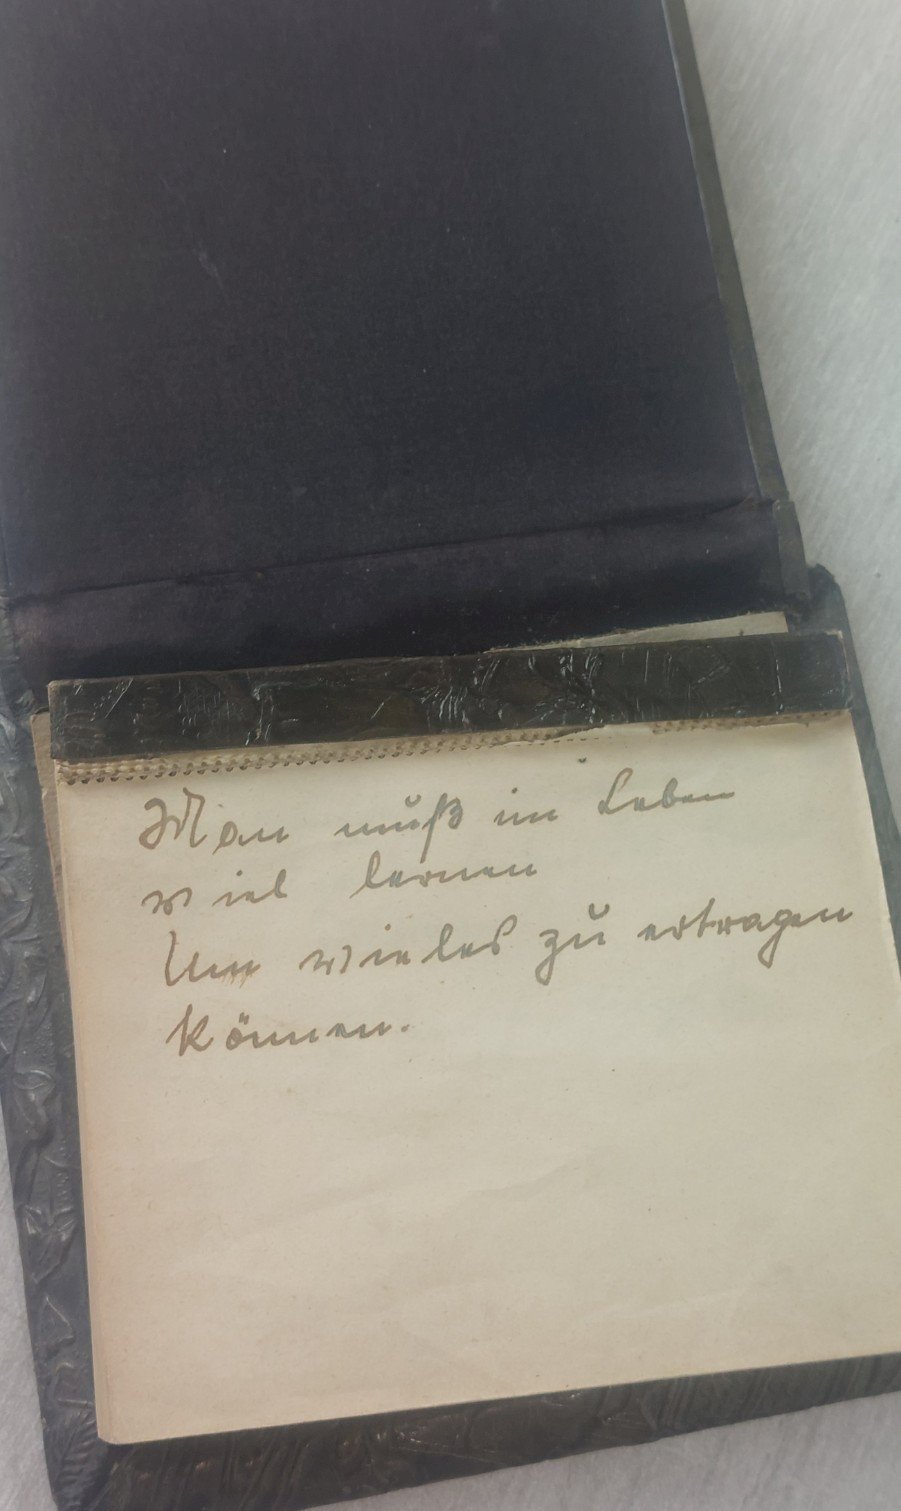 Man muß im Leben
viel lernen
Um vieles zu ertragen
können.